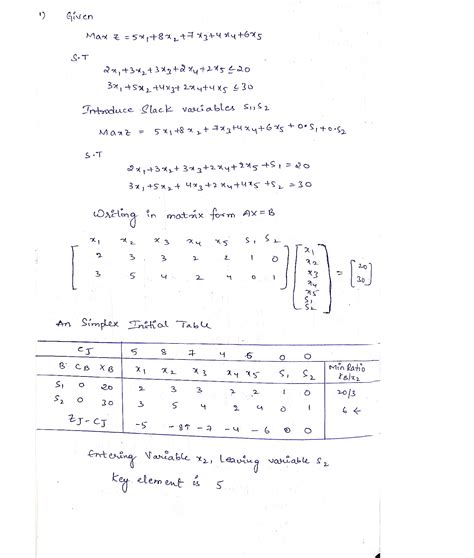 1) Given
Max Z = 5x1+8x2+7x3+4x4+6x5
S.T
2x1+3x2+3x3+2x4+2x5 ≤ 20
3x1+5x2+4x3+2x4+4x5 ≤ 30
Introduce Slack variables S1, S2
Max Z = 5x1+8x2+7x3+4x4+6x5+0.S1+0.S2
S.T
2x1+3x2+3x3+2x4+2x5+S1 = 20
3x1+5x2+4x3+2x4+4x5+S2 = 30
Writing in matrix form AX=B
x1 x2 x3 x4 x5 S1 S2
2 3 3 2 2 1 0
3 5 4 2 4 0 1
x1
x2
x3
x4
x5
S1
S2
=
20
30
An Simplex Initial Table
CJ 5 8 7 4 6 0 0
B CB XB x1 x2 x3 x4 x5 S1 S2 Min Ratio XB/x2
S1 0 20 2 3 3 2 2 1 0 20/3
S2 0 30 3 5 4 2 4 0 1 6 ←
ZJ-CJ -5 -8↑ -7 -4 -6 0 0
Entering Variable x2, leaving variable S2
Key element is 5